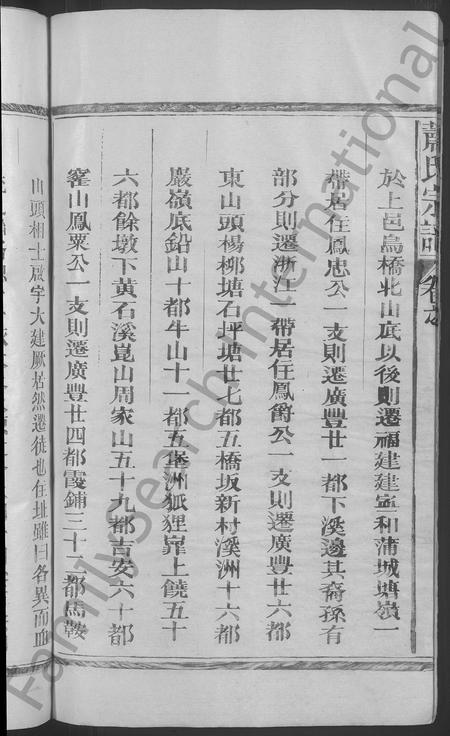 蕭氏宗譜 卷之
於上邑烏橋北山底以後則遷福建建寧和蒲城塘嶺一
帶居住鳳忠公一支則遷廣豐廿一都下溪邊其裔孫有
部分則遷浙江一帶居住鳳爵公一支則遷廣豐廿六都
東山頭楊柳塘石坪塘廿七都五橋坂新村溪洲十六都
巖嶺底鉛山十都牛山十一都五堡洲狐狸𡶶上饒五十
六都餘墩下黃石溪嵩山周家山五十九都吉安六十都
窪山鳳粟公一支則遷廣豐廿四都霞鋪三十二都馬鞍
山頭相士啟宇大建厥居然遷徒也住址雖曰各異而血
FamilySearch International